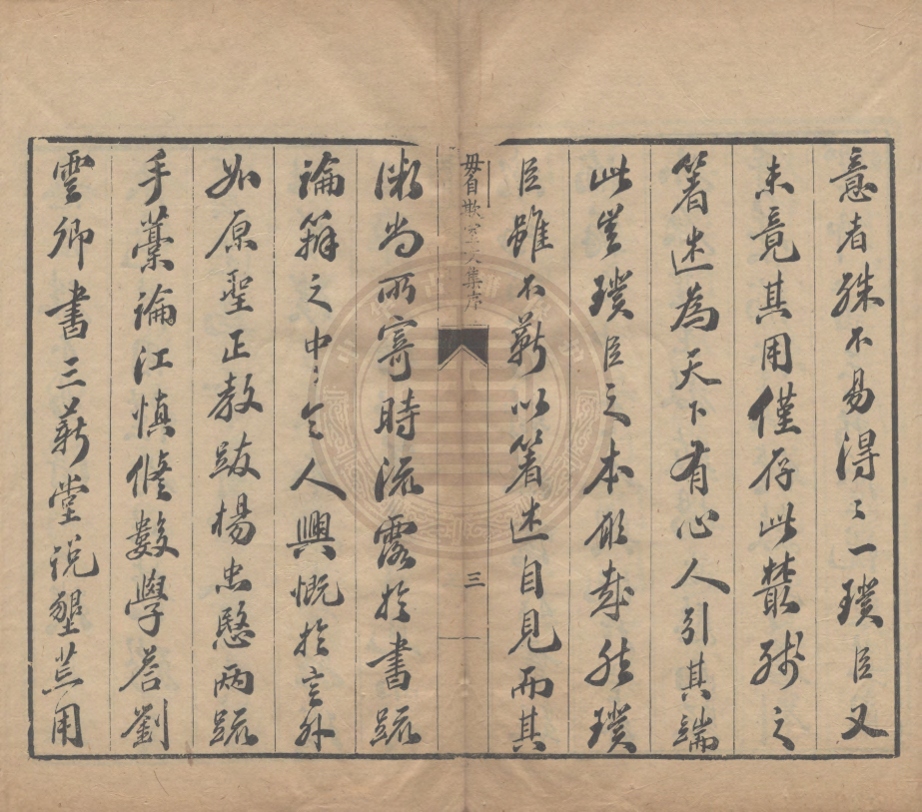 意者殊不易得〻一璞臣又
未竟其用僅存此叢殘之
箸述為天下有心人引其端
此豈璞臣之本願哉然璞
臣雖不蘄以箸述自見而其
毋自欺室文集序
三
微尚所寄時流露於書疏
論辯之中〻令人興慨於言外
如原聖正教跋楊忠愍兩疏
手藁論江慎修數學答劉
雲卿書三蘄堂説墾荒用